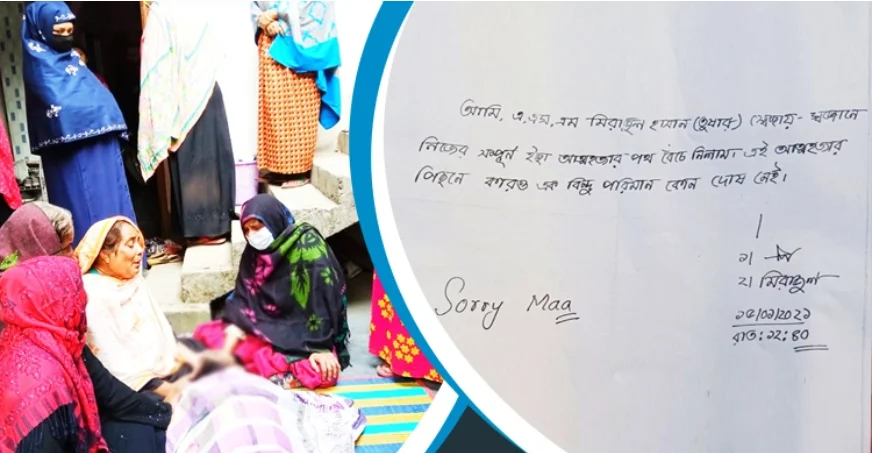 আমি, এ,এস,এম মিরাজুল হাসান (তুষার) স্বেচ্ছায়- স্বজ্ঞানে
নিজের সম্পূর্ন ইচ্ছা আত্মহত্যার পথ বেঁচে নিলাম। এই আত্মহত্যার
পিছনে কারও এক বিন্দু পরিমান কোন দোষ নেই।
১।
২। মিরাজুল
Sorry Maa
১৫/০১/২০২১
রাত: ১২:৪০